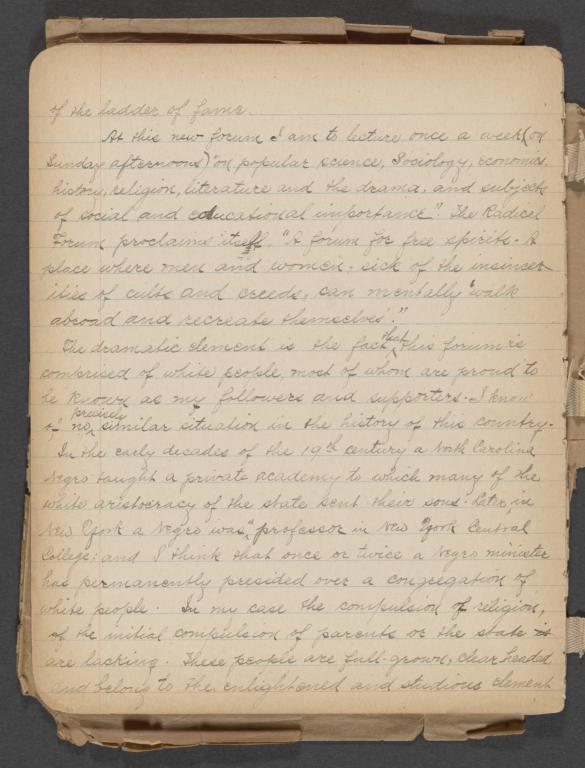 of the ladder of fame.
At this new forum I am to lecture once a week (on
Sunday afternoons) "on popular science, Sociology, economics,
history, religion, literature and the drama, and subjects
of social and educational importance". The Radical
Forum proclaims itself, "A forum for free spirits - A
place where men and women, sick of the insincer-
ities of cults and creeds, can mentally 'walk
abroad and recreate themselves'."
The dramatic element is the fact that this forum is
comprised of white people, most of whom are proud to
be known as my followers and supporters. I know
of no precisely similar situation in the history of this country.
In the early decades of the 19th century a North Carolina
Negro taught a private academy to which many of the
white aristocracy of the state sent their sons. Later, in
New York a Negro was a professor in New York Central
College: and I think that once or twice a Negro minister
has permanently presided over a congregation of
white people. In my case the compulsion of religion,
of the initial compulsion of parents or the state is
are lacking. These people are full-grown, clear headed
and belong to the enlightened and studious element